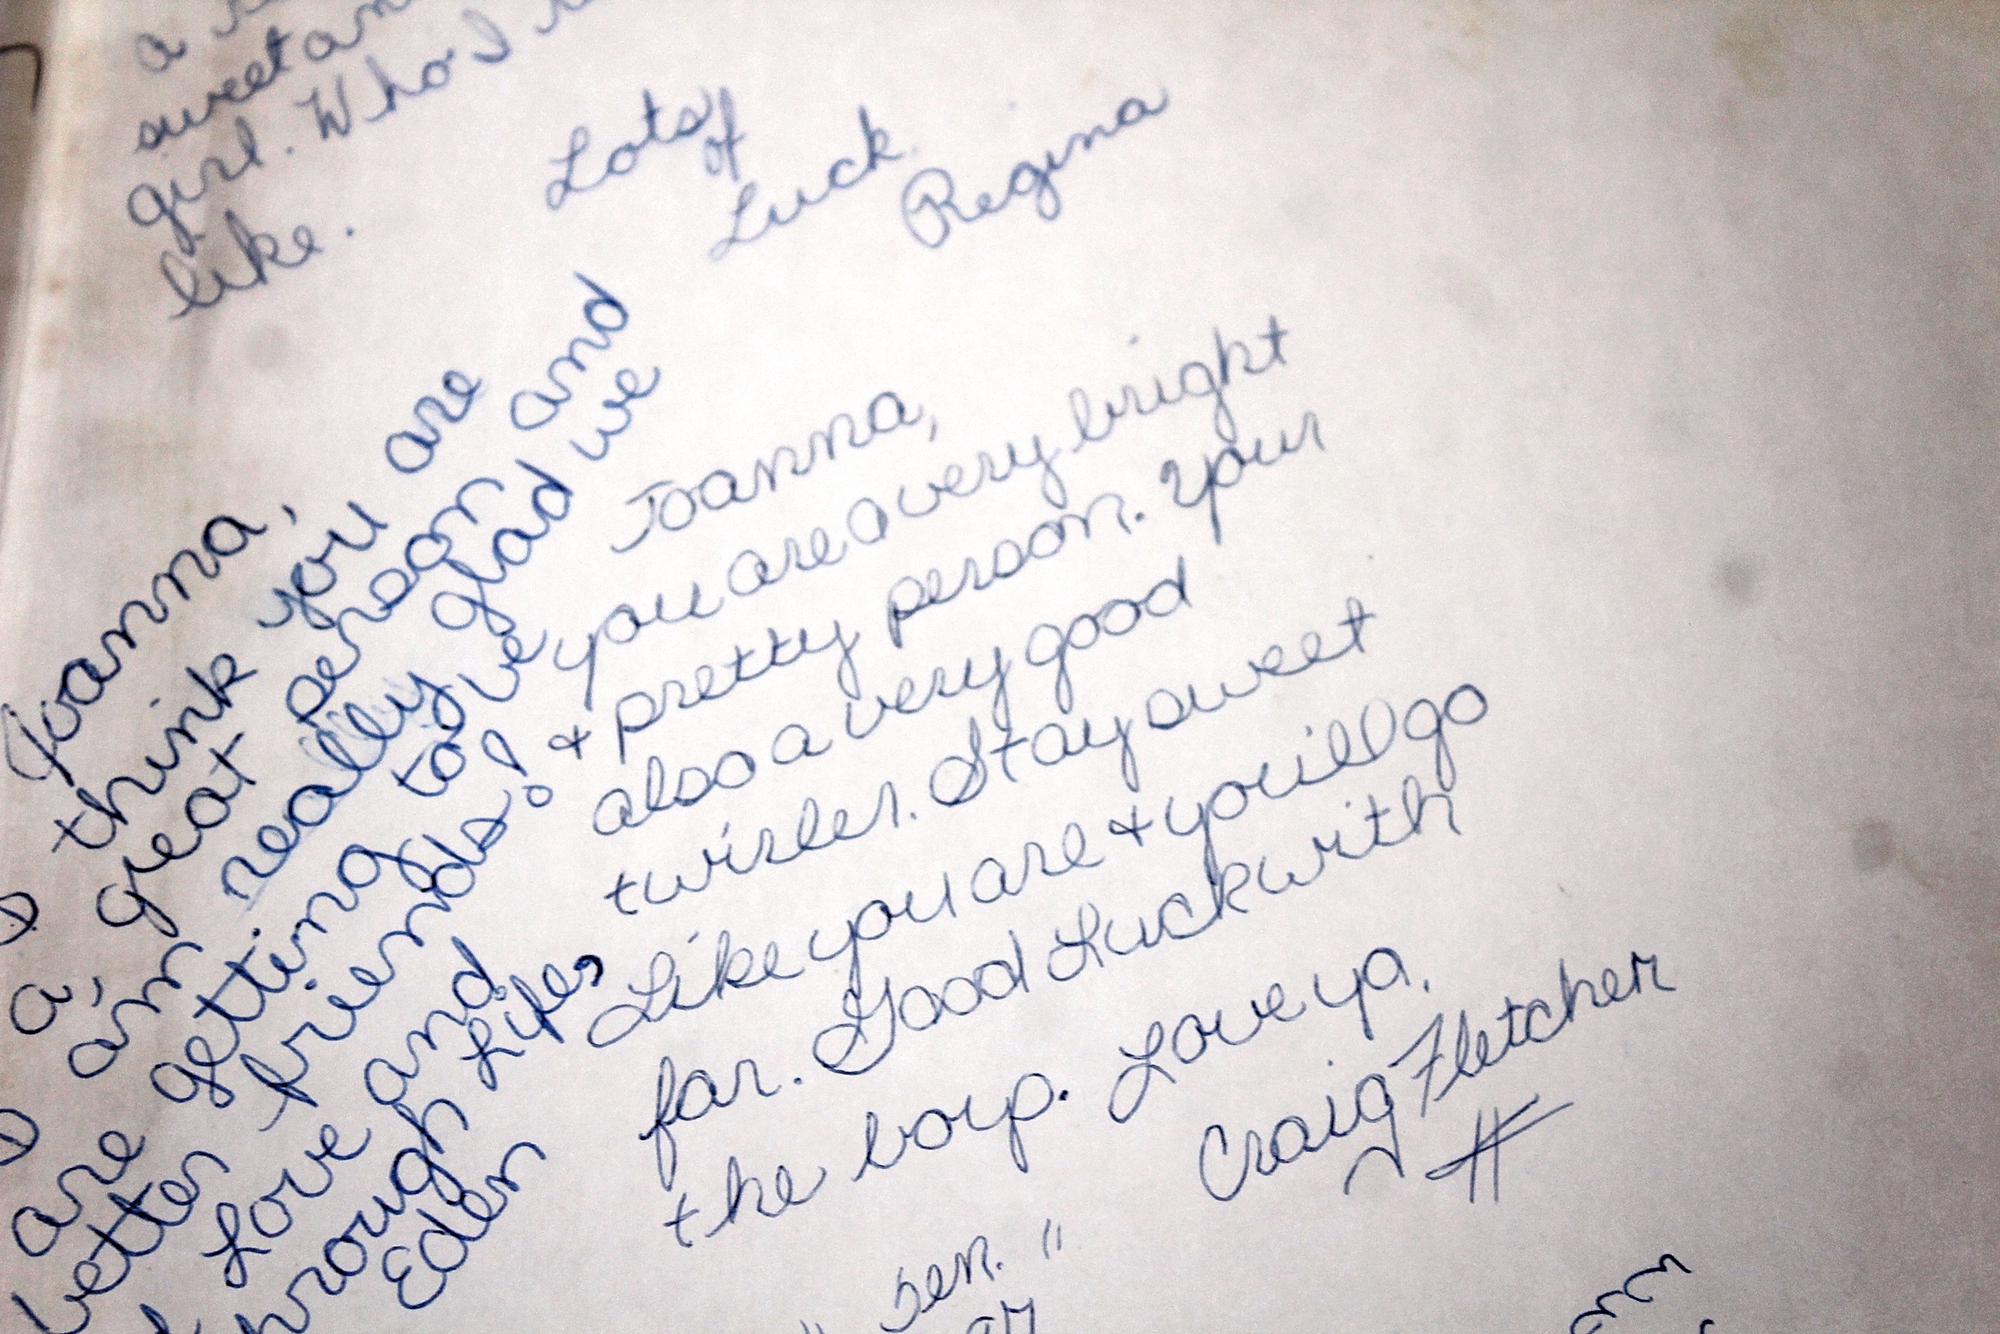 a
sweet an
girl. Who I
like.
Lots of
Luck.
Regina
Joanna,
think you are
a great person and
am really glad we
are getting to be
better friends!
Love and
Life,
Eden
Joanna,
you are a very bright
+ pretty person. Your
also a very good
twirler. Stay sweet
Like you are + you'll go
far. Good Luck with
the boyp. Love ya.
Craig Fletcher
"sen."